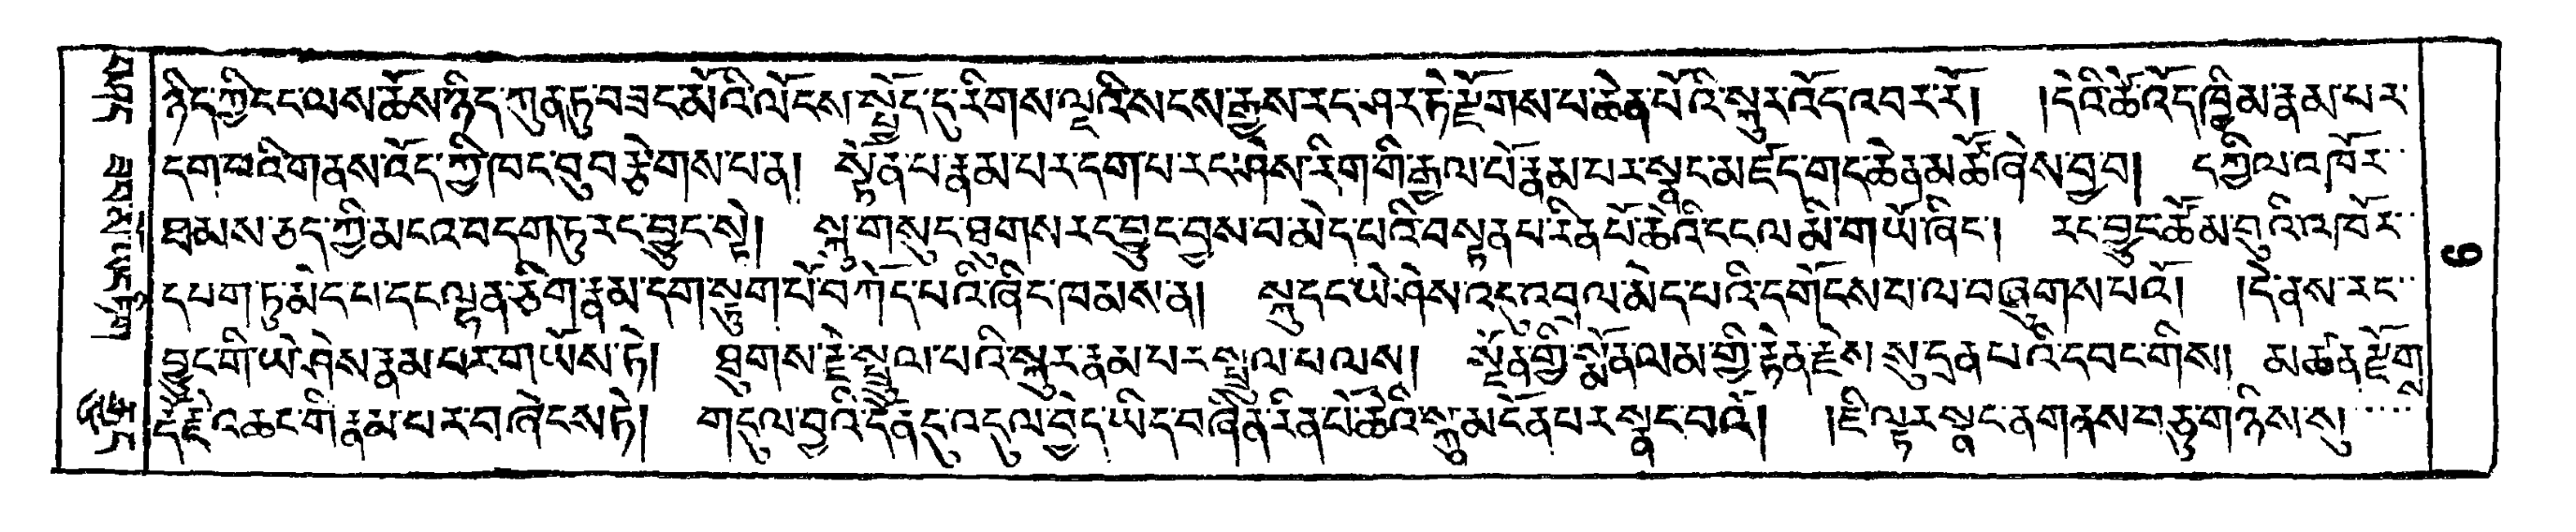 ཉིད་ཀྱི་ངང་ལས་ཆོས་ཉིད་ཀུན་ཏུ་བཟང་མོའི་ལོངས་སྤྱོད་དུ་རིགས་ལྔའི་སངས་རྒྱས་རང་ཤར་ཏེ་རྫོགས་པ་ཆེན་པོའི་སྐུར་འོད་འབར་རོ། །དེའི་ཚེ་འོད་ཁྱིམ་རྣམ་པར་
དག་པའི་གནས་འོད་ཀྱི་ཁང་བུ་བརྩེགས་པ་ན། སྟོན་པ་རྣམ་པར་དག་པ་རང་ཤེས་རིག་གི་རྒྱལ་པོ་རྣམ་པར་སྣང་མཛད་གང་ཆེན་མཚོ་ཞེས་བྱ་བ། དཀྱིལ་འཁོར་
ཐམས་ཅད་ཀྱི་མངའ་བདག་ཏུ་རང་བྱུང་སྟེ། སྐུ་གསུང་ཐུགས་རང་བྱུང་བྱས་བ་མེད་པའི་བསྟན་པ་རིན་པོ་ཆེའི་ངང་ལ་མི་གཡོ་ཞིང་། རང་བྱུང་ཚོམ་བུའི་འཁོར་
དཔག་ཏུ་མེད་པ་དང་ལྷན་ཅིག་རྣམ་དག་སྟུག་པོ་བཀོད་པའི་ཞིང་ཁམས་ན། སྐུ་དང་ཡེ་ཤེས་འདུ་འབྲལ་མེད་པའི་དགོངས་པ་ལ་བཞུགས་པའོ། །དེ་ནས་རང་
བྱུང་གི་ཡེ་ཤེས་རྣམ་པར་གཡོས་ཏེ། ཐུགས་རྗེ་སྤྲུལ་པའི་སྐུར་རྣམ་པར་སྤྲུལ་པ་ལས། སྔོན་གྱི་སྨོན་ལམ་གྱི་རྟེན་རྗེས་སུ་དྲན་པའི་དབང་གིས། མཚན་རྫོགས་
རྡོ་རྗེ་འཆང་གི་རྣམ་པར་བཞེངས་ཏེ། གདུལ་བྱའི་དོན་དུ་འདུལ་བྱེད་ཡིད་བཞིན་རིན་པོ་ཆེའི་སྐུ་མངོན་པར་སྣང་བའོ། །ཇི་ལྟར་སྣང་ན་གནས་བཅུ་གཉིས་སུ
༧